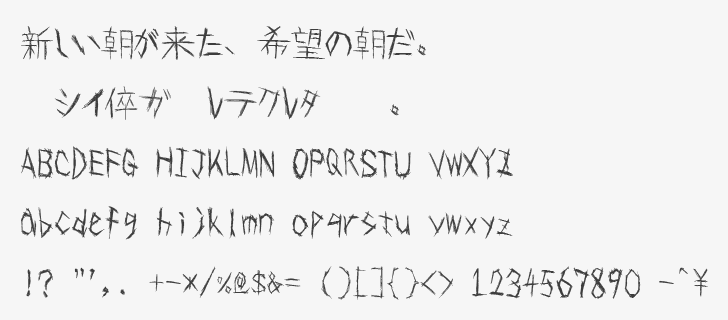 新しい朝が来た、希望の朝だ。
シイ倅ガ レテクレタ 。
ABCDEFG HIJKLMN OPQRSTU VWXYZ
abcdefg hijklmn opqrstu vwxyz
!? "',. +-*/%@$&= ()[]{}<> 1234567890 -^¥